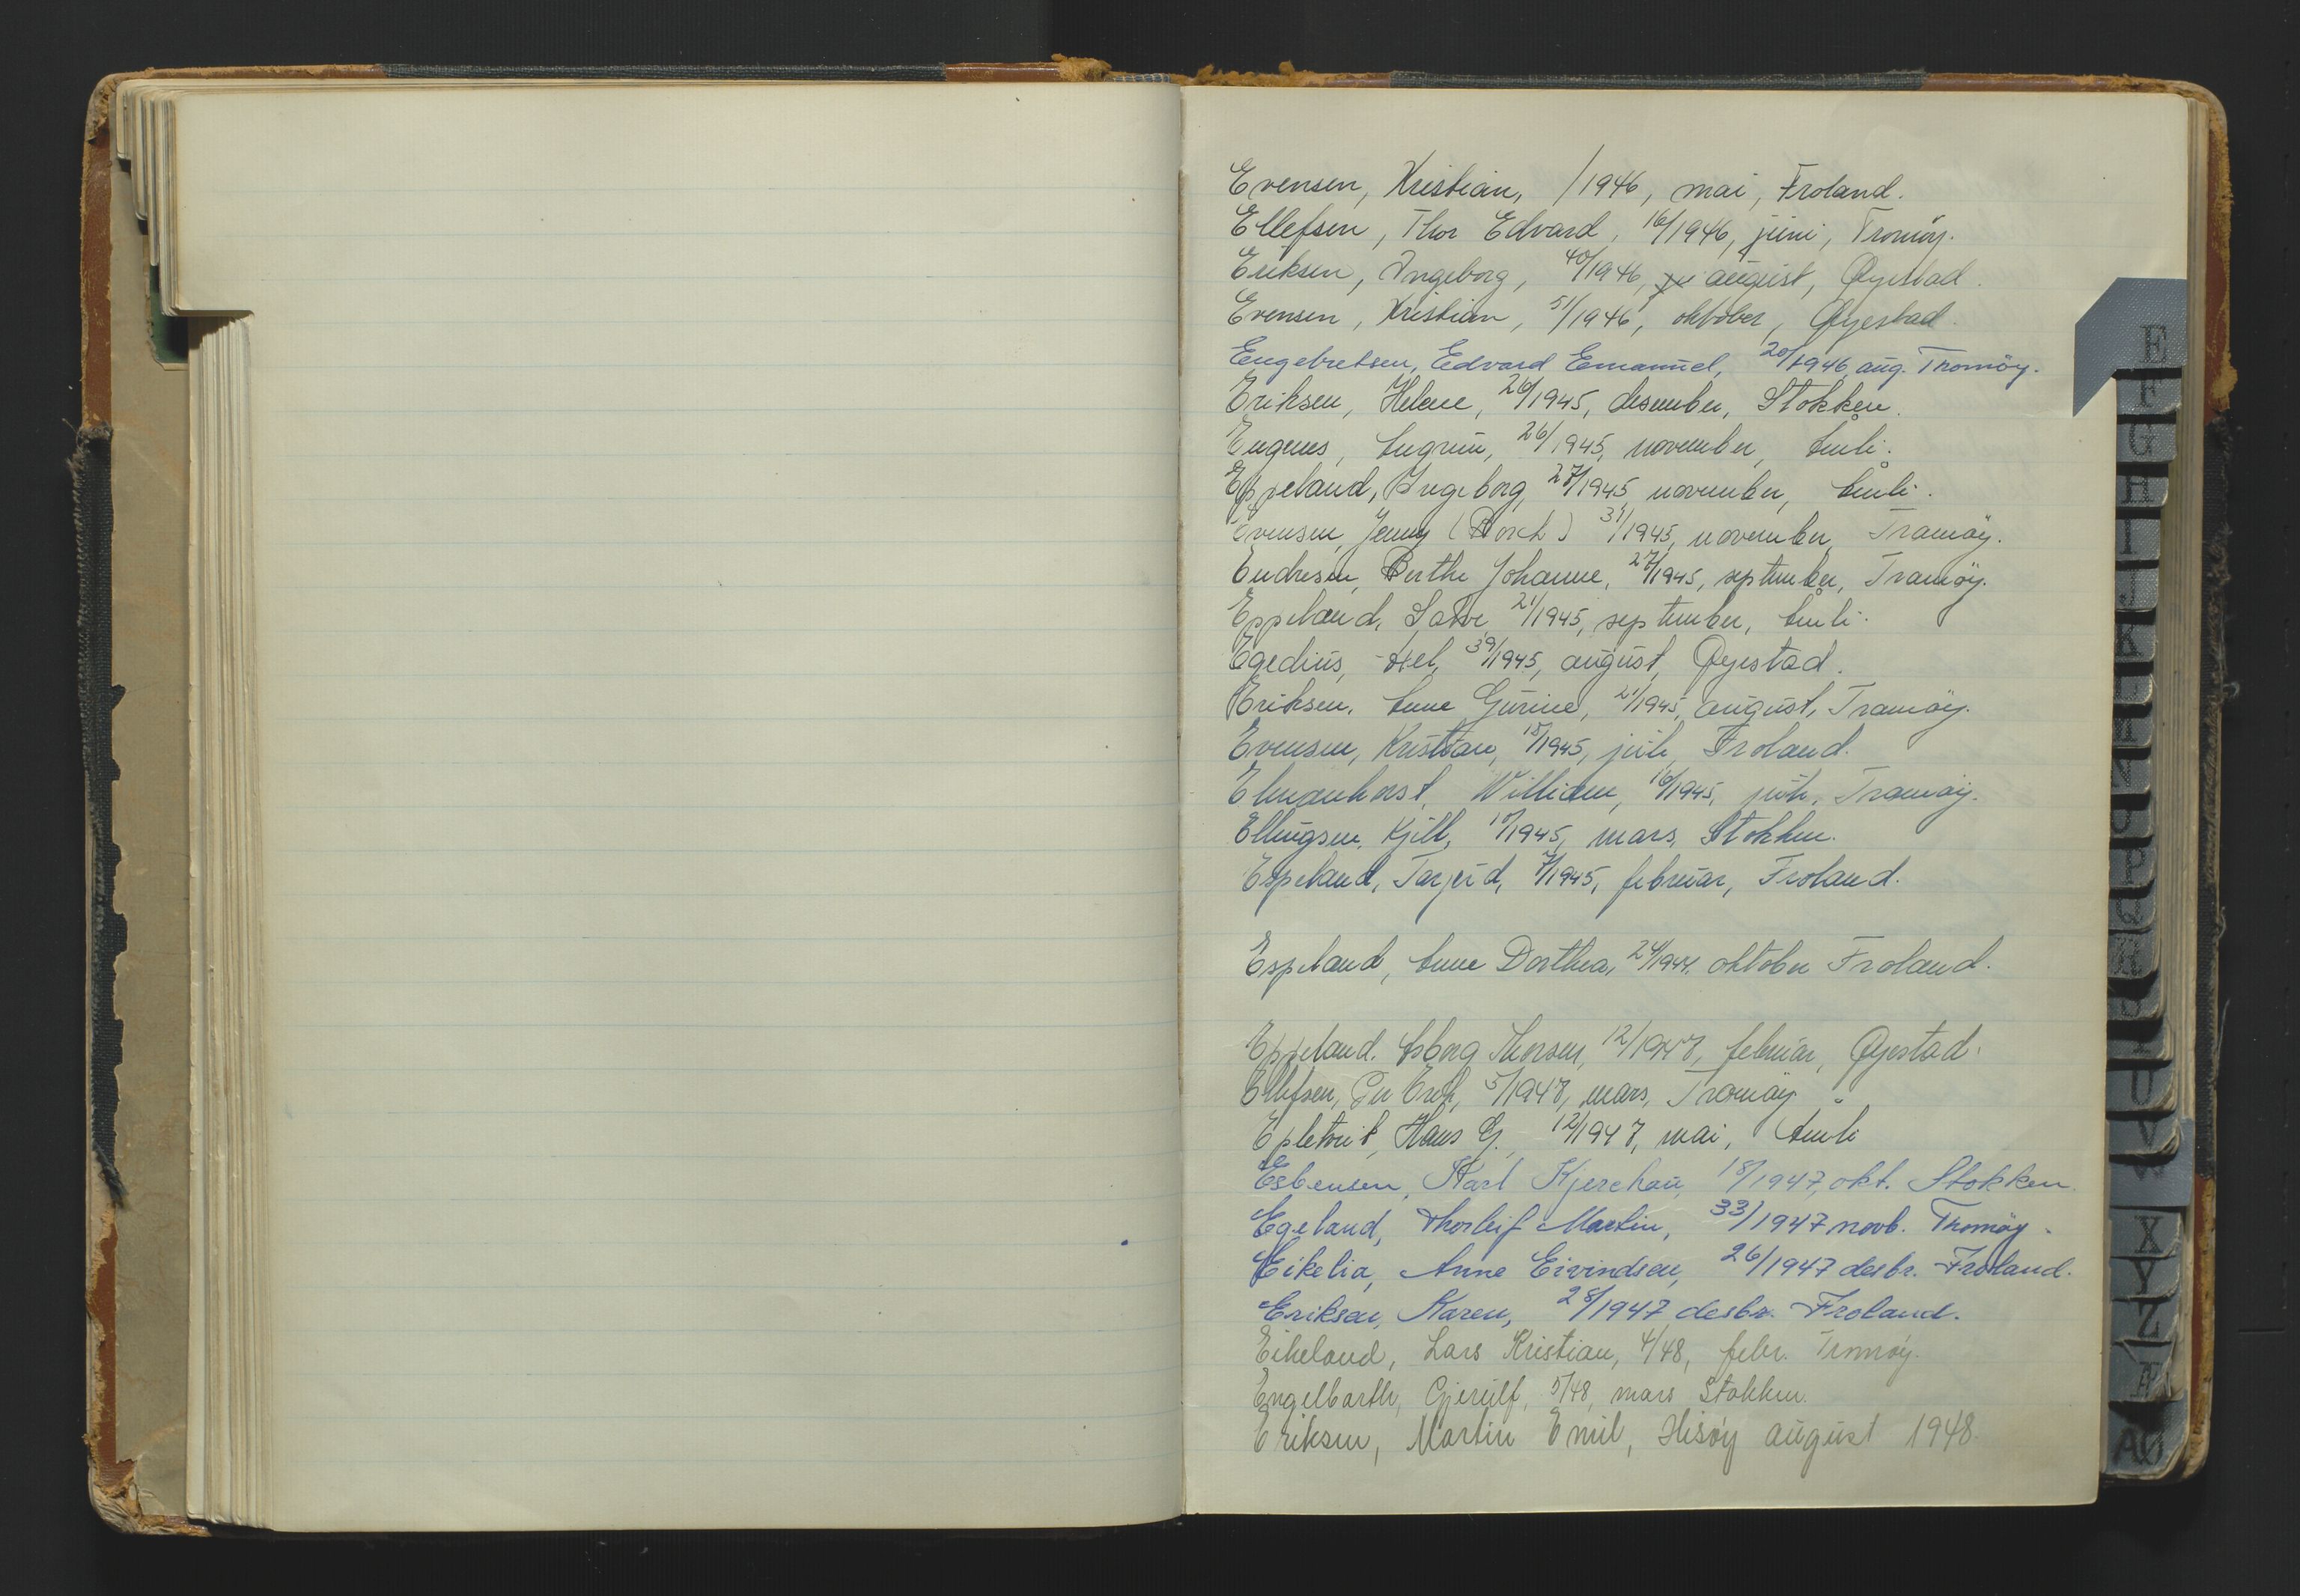 Evensen, Kristian, /1946, mai, Froland.
Ellefsen, Thor Edvard, 16/1946, juni, Tromøy.
Eriksen, Ingeborg, 40/1946, august, Øyestad.
Evensen, Kristian, 51/1946, oktober, Øyestad.
Engebretsen, Edvard Emanuel, 20/1946, aug. Tromöy.
Eriksen, Helene, 26/1945, desember, Stokken.
Engenes, Ingrun, 26/1945, november, Åmli.
Eppeland, Ingeborg, 27/1945, november, Åmli.
Evensen, Jenny (Borch) 31/1945, november, Tromöy.
Endresen, Berthe Johanne, 27/1945, september, Tromöy.
Eppeland, Salve, 21/1945, september, Åmli.
Egedius, 39/1945, august, Øyestad.
Eriksen, Anne Gurine, 21/1945, august, Tromöy.
Evensen, Kristian, /1945, juli, Froland.
Elmenhorst, William, 16/1945, juli, Tromöy.
Ellingsen, Kjell, /1945, mars, Stokken.
Espeland, Tarjerd, 7/1945, februar, Froland.
Espeland, Anne Dorthea, 24/1944, oktober Froland.
Eppeland, Åsborg Thorsen, 12/1947, februar, Øyestad.
Ellefsen, Per Erik, 5/1947, mars, Tromöy
Epletveit, Hans G., 12/1947, mai, Åmli
Esbensen, Karl Kjerchau, 18/1947, okt. Stokken.
Egeland, Thorleif Martin, 33/1947 novb. Tromöy.
Eikelia, Anne Eivindsen, 26/1947 desbr. Froland.
Eriksen, Karen, 28/1947 desbr. Froland.
Eikeland, Lars Kristian, 4/48, febr. Tromøy.
Engelbarth, Gjerulf, 5/48, mars Stokken.
Eriksen, Martin Emil, Hisøy august 1948.
E
F
G
H
I
J
K
P
Q
U
V
X
Y
Z